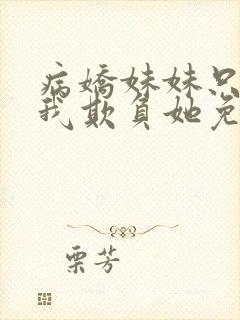 病嬌妹妹只
我欺負她免
栗芳